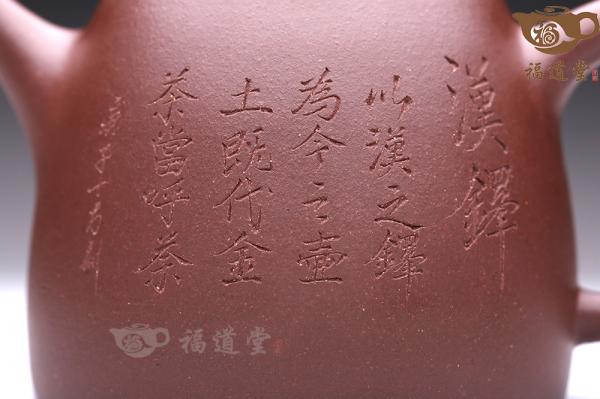 漢鐸
以漢之鐸
為今之壺
土既代金
茶當呼荼
福道堂
福道堂